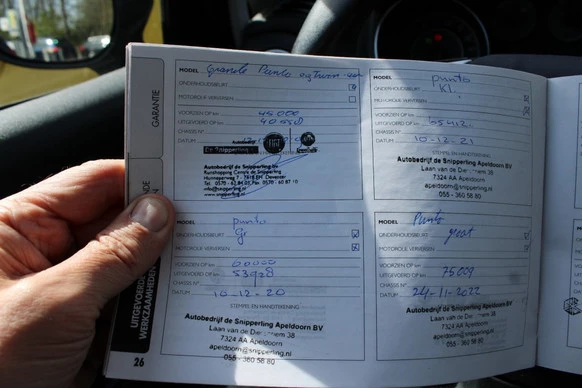 GARANTIE
UITGEVOERDE
WERKZAAMHEDEN
26
MODEL Grande Punto
ONDERHOUDSBEURT
MOTOROLIE VERVERSEN
VOORZIEN OP km 45000
UITGEVOERD OP km
CHASSIS N°
DATUM
De Snipperling
Autobedrijf de Snipperling
Deventer
www.snipperling.nl
MODEL punto
ONDERHOUDSBEURT Kl.
MOTOROLIE VERVERSEN
VOORZIEN OP km
UITGEVOERD OP km
CHASSIS N°
DATUM 10-12-21
STEMPEL EN HANDTEKENING
Autobedrijf de Snipperling Apeldoorn BV
7324 AA Apeldoorn
apeldoorn@snipperling.nl
055 - 360 58 80
MODEL punto
ONDERHOUDSBEURT Gr
MOTOROLIE VERVERSEN
VOORZIEN OP km 60000
UITGEVOERD OP km
CHASSIS N°
DATUM 10-12-20
STEMPEL EN HANDTEKENING
Autobedrijf de Snipperling Apeldoorn BV
Laan van de
7324 AA Apeldoorn
apeldoorn@snipperling.nl
055 - 360 58 80
MODEL Punto
ONDERHOUDSBEURT groot
MOTOROLIE VERVERSEN
VOORZIEN OP km
UITGEVOERD OP km 75009
CHASSIS N°
DATUM 24-11-2022
STEMPEL EN HANDTEKENING
Autobedrijf de Snipperling Apeldoorn BV
Laan van de
7324 AA Apeldoorn
apeldoorn@snipperling.nl
055 - 360 58 80